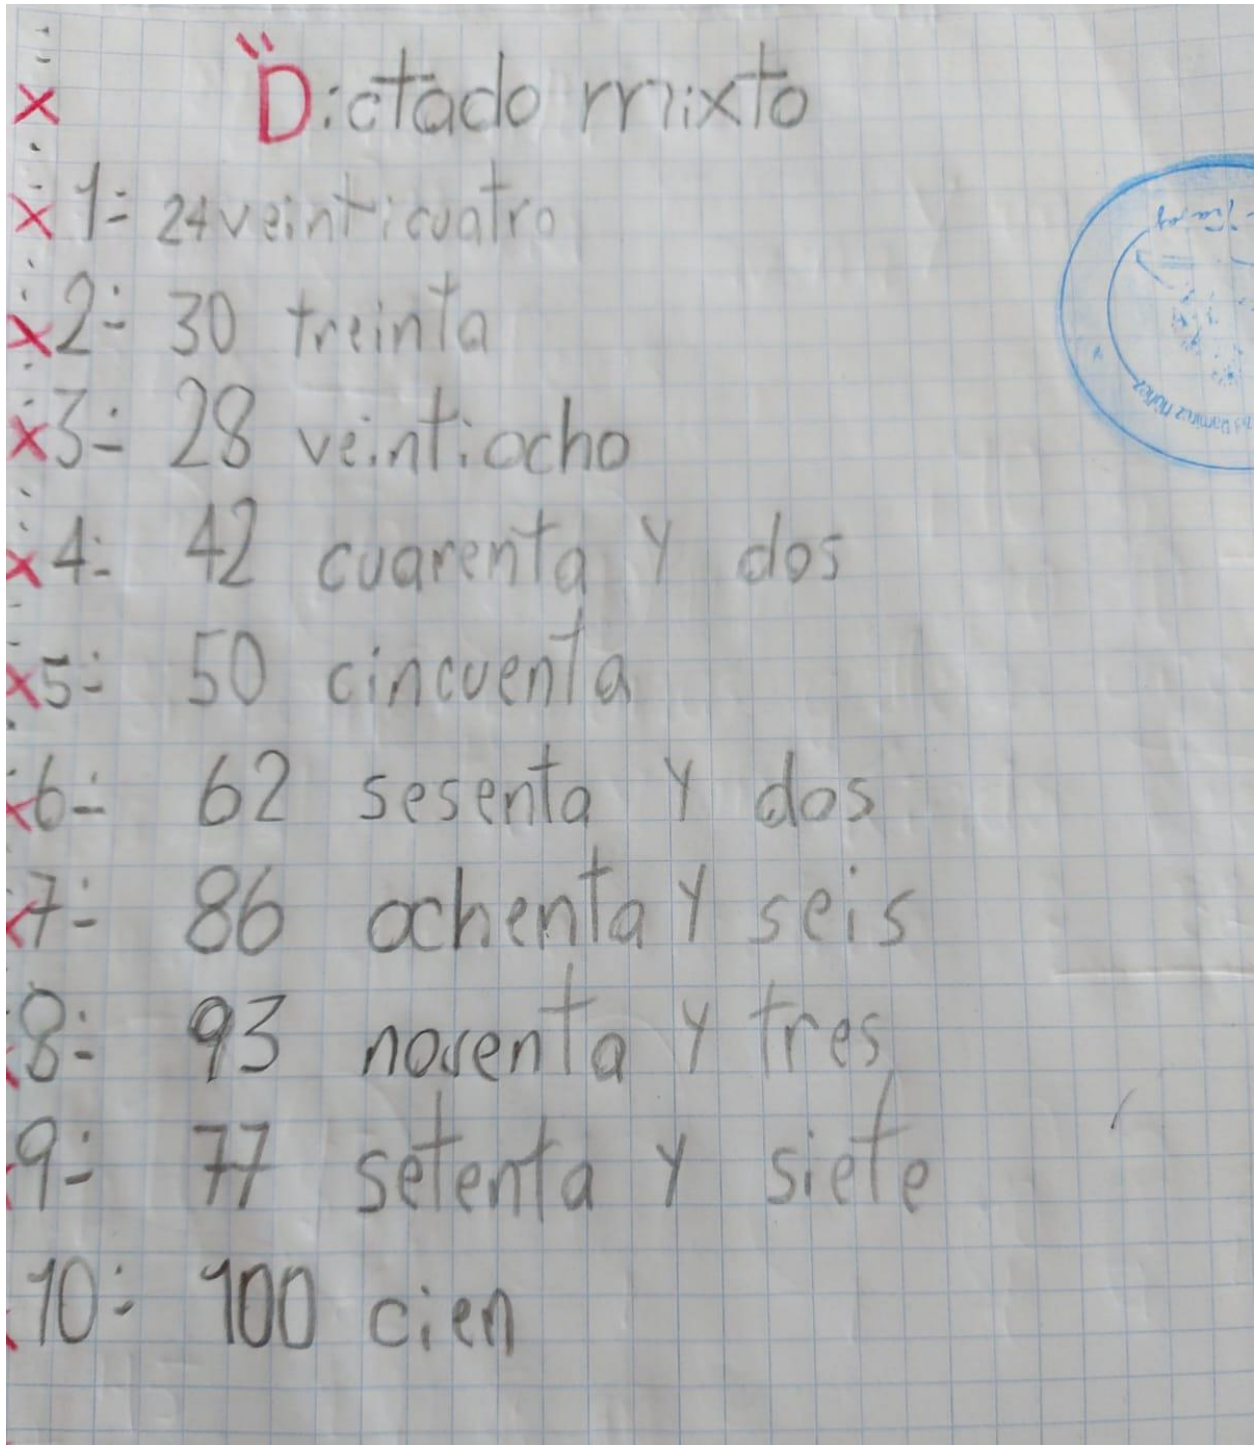 "Dictado mixto
1:- 24 veinticuatro
2:- 30 treinta
3:- 28 veintiocho
4:- 42 cuarenta y dos
5:- 50 cincuenta
6:- 62 sesenta y dos
7:- 86 ochenta y seis
8:- 93 noventa y tres
9:- 77 setenta y siete
10:- 100 cien